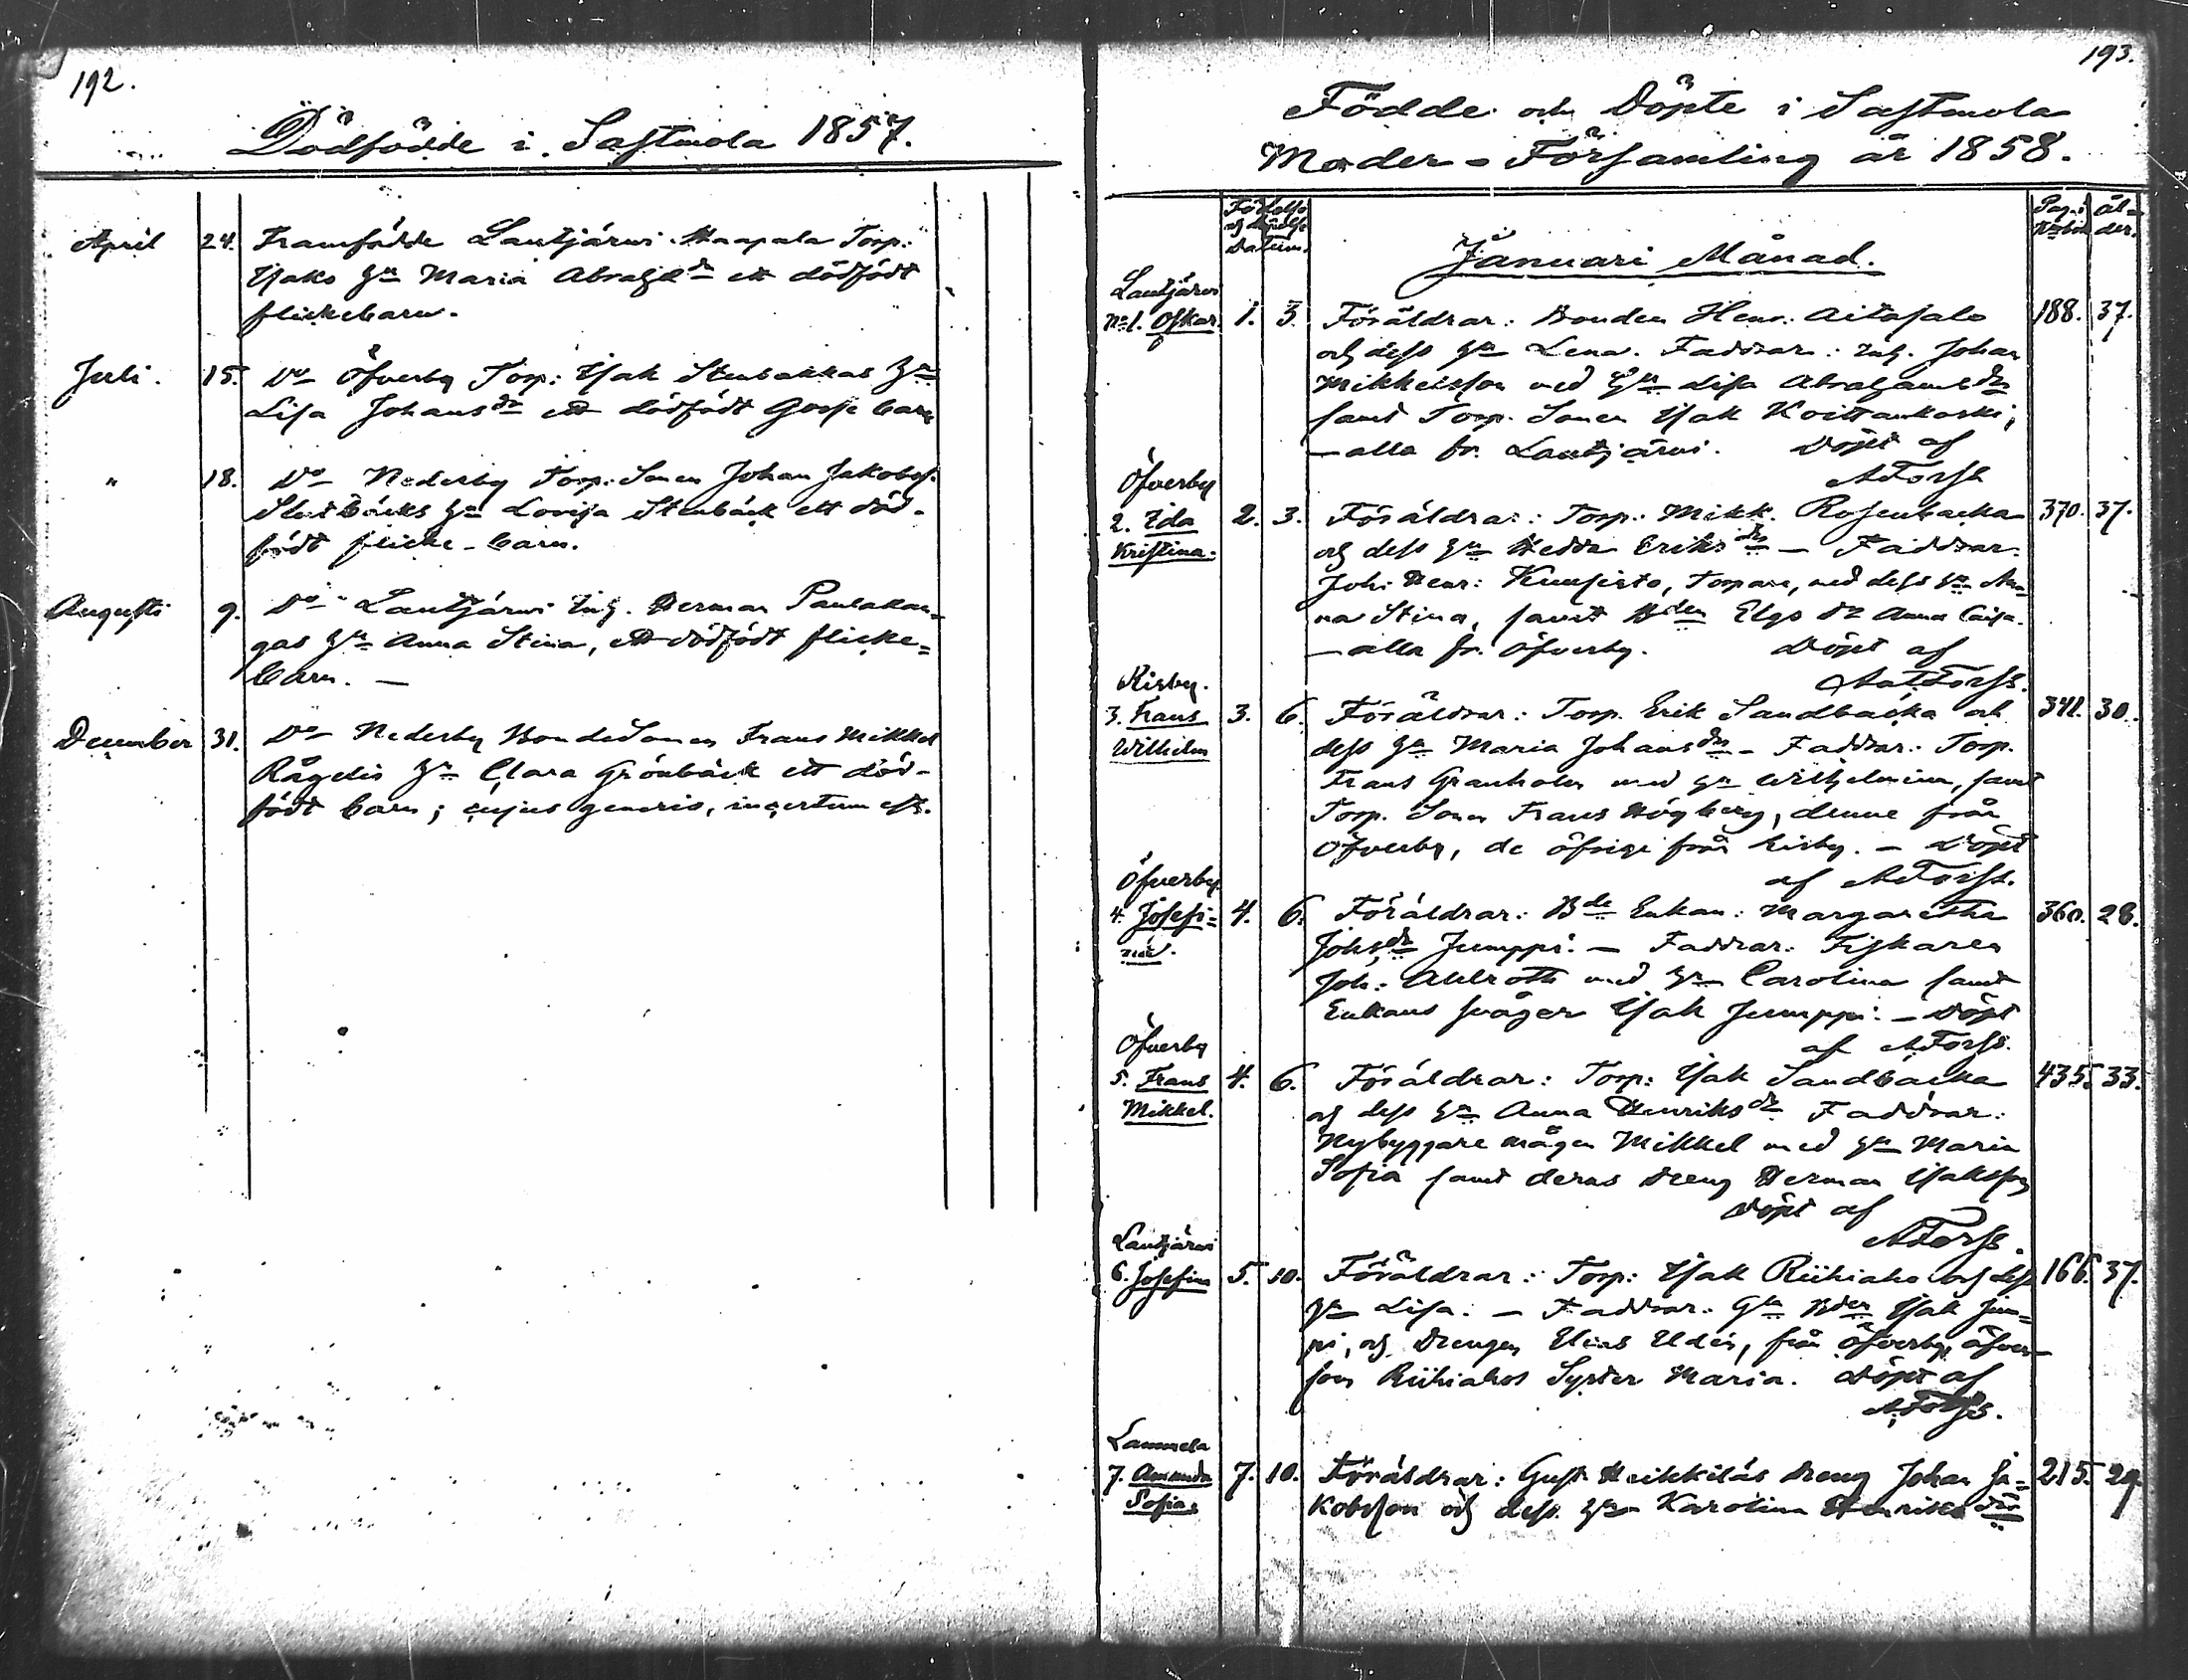 192.
Dödfödde i Sastmola 1857.
April 24. Framfödde Lautjärwi Haapala Torp:
Isaks hu Maria Abrahdr ett dödfödt
flickebarn.
Juli. 15. Do Öfverby Torp: Isak Stenbackas hu
Lisa Johansdr ett dödfödt Gosse barn
" 18. Do Nederby Torp: Sonen Johan Jakobss.
hu Lovisa Stenbäck ett död-
födt flicke-barn.
Augusti 9. Do Lautjärwi Inh. Herman Pantakan-
gas hu Anna Stina, ett dödfödt flicke-
barn. —
December 31. Do Nederby BondeSonen Frans Mikkel
Rågelis hu Clara Grönbäck ett död-
födt barn; cujus generis, incertum est.
193.
Födde och Döpte i Sastmola
Moder-Församling år 1858.
Födelse och döpelse Datum.
Pag: i Kbok
Ål-der.
Januari Månad.
Lautjärwi
No 1. Oskar 1. 3. Föräldrar: Bonden Henr: Aitasalo 188. 37.
och dess hu Lena. Faddrar: Inh. Johan
Mikkelsson med hu Lisa Abrahamsdr
samt Torp. Sonen Isak Koittankoski,
—alla fr. Lautjärwi. Döpt af
AForss
Öfverby
2. Ida 2. 3. Föräldrar: Torp: Mikk. Rosenbacka 370. 37.
Kristina. och dess hu Hedda Eriksdr — Faddrar:
Joh: Henr: Kuusisto, Torpare, med dess hu An-
na Stina, samt Bden Elgs dr Anna Caisa.
—alla fr. Öfverby. Döpt af
AntForss.
Kisby.
3. Frans 3. 6. Föräldrar: Torp. Erik Sandbacka och 341. 30.
Wilhelm dess hu Maria Johansdr — Faddrar: Torp.
Frans Granholm med hu Wilhelmina, samt
Torp. Sonen Frans Högberg, denne från
Öfverby, de öfrige från Kisby. — Döpt
af AForss.
Öfverby
4. Josefi- 4. 6. Föräldrar: Bde Enkan: Margaretha 360. 28.
na. Johsdr Jumppi. — Faddrar: Fiskaren
Joh: Ahlroth med hu Carolina samt
Enkans svåger Isak Jumppi. — Döpt
af AForss.
Öfverby
5. Frans 4. 6. Föräldrar: Torp: Isak Sandbacka 435. 33.
Mikkel. och dess hu Anna Henriksdr Faddrar:
Nybyggare mågen Mikkel med hu Maria
Sofia samt deras dreng Herman Isaksson
Döpt af
AForss.
Lautjärwi
6. Josefina 5. 10. Föräldrar: Torp: Isak Riihiaho och dess 166. 37.
hu Lisa. — Faddrar: Gla Bden Isak Jum-
pi, och Drengen Elias Udén, från Öfverby, äfven-
som Riihiahos Syster Maria. Döpt af
AForss.
Lammela
7. Amanda 7. 10. Föräldrar: Gust Heikkiläs dreng Johan Ja- 215. 29.
Sofia. kobsson och dess hu Karolina Henricsdr